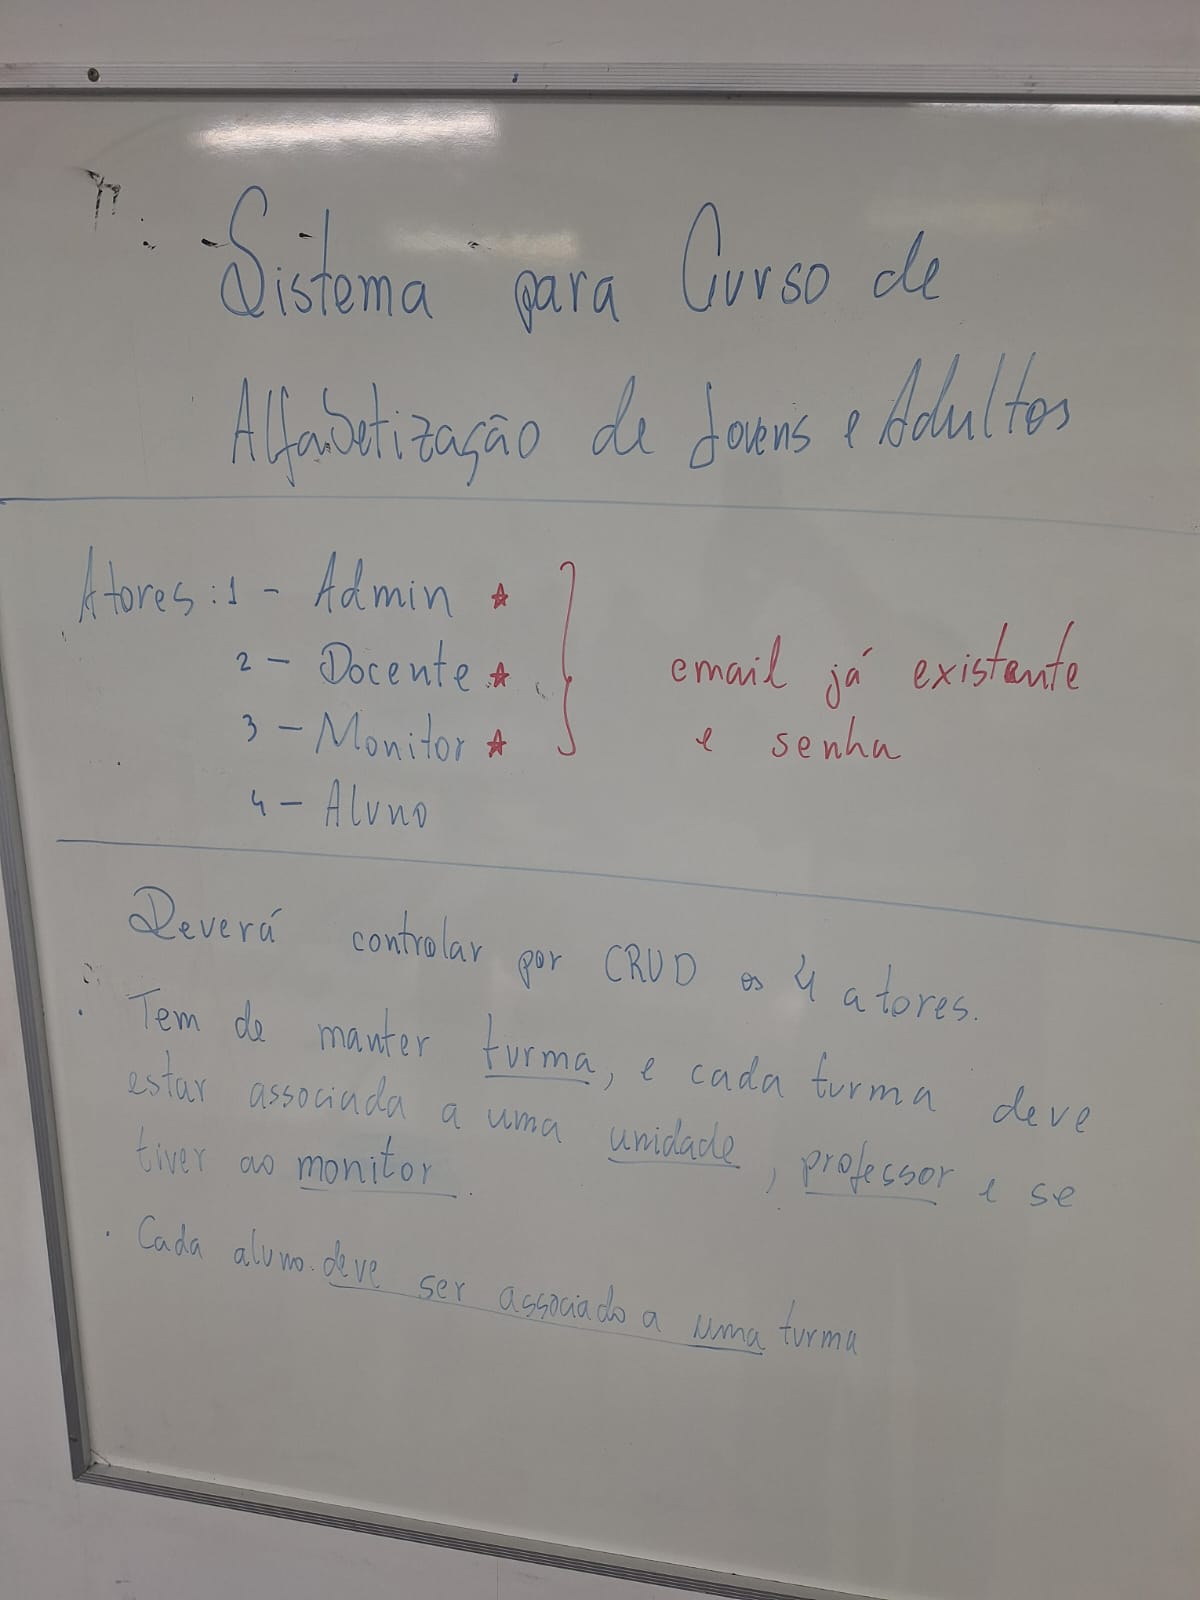 Sistema para Curso de
Alfabetização de Jovens e Adultos
Atores: 1 - Admin ★
2 - Docente ★
3 - Monitor ★
4 - Aluno
email já existente
e senha
Deverá controlar por CRUD os 4 atores.
• Tem de manter turma, e cada turma deve
estar associada a uma unidade, professor e se
tiver ao monitor.
• Cada aluno deve ser associado a uma turma